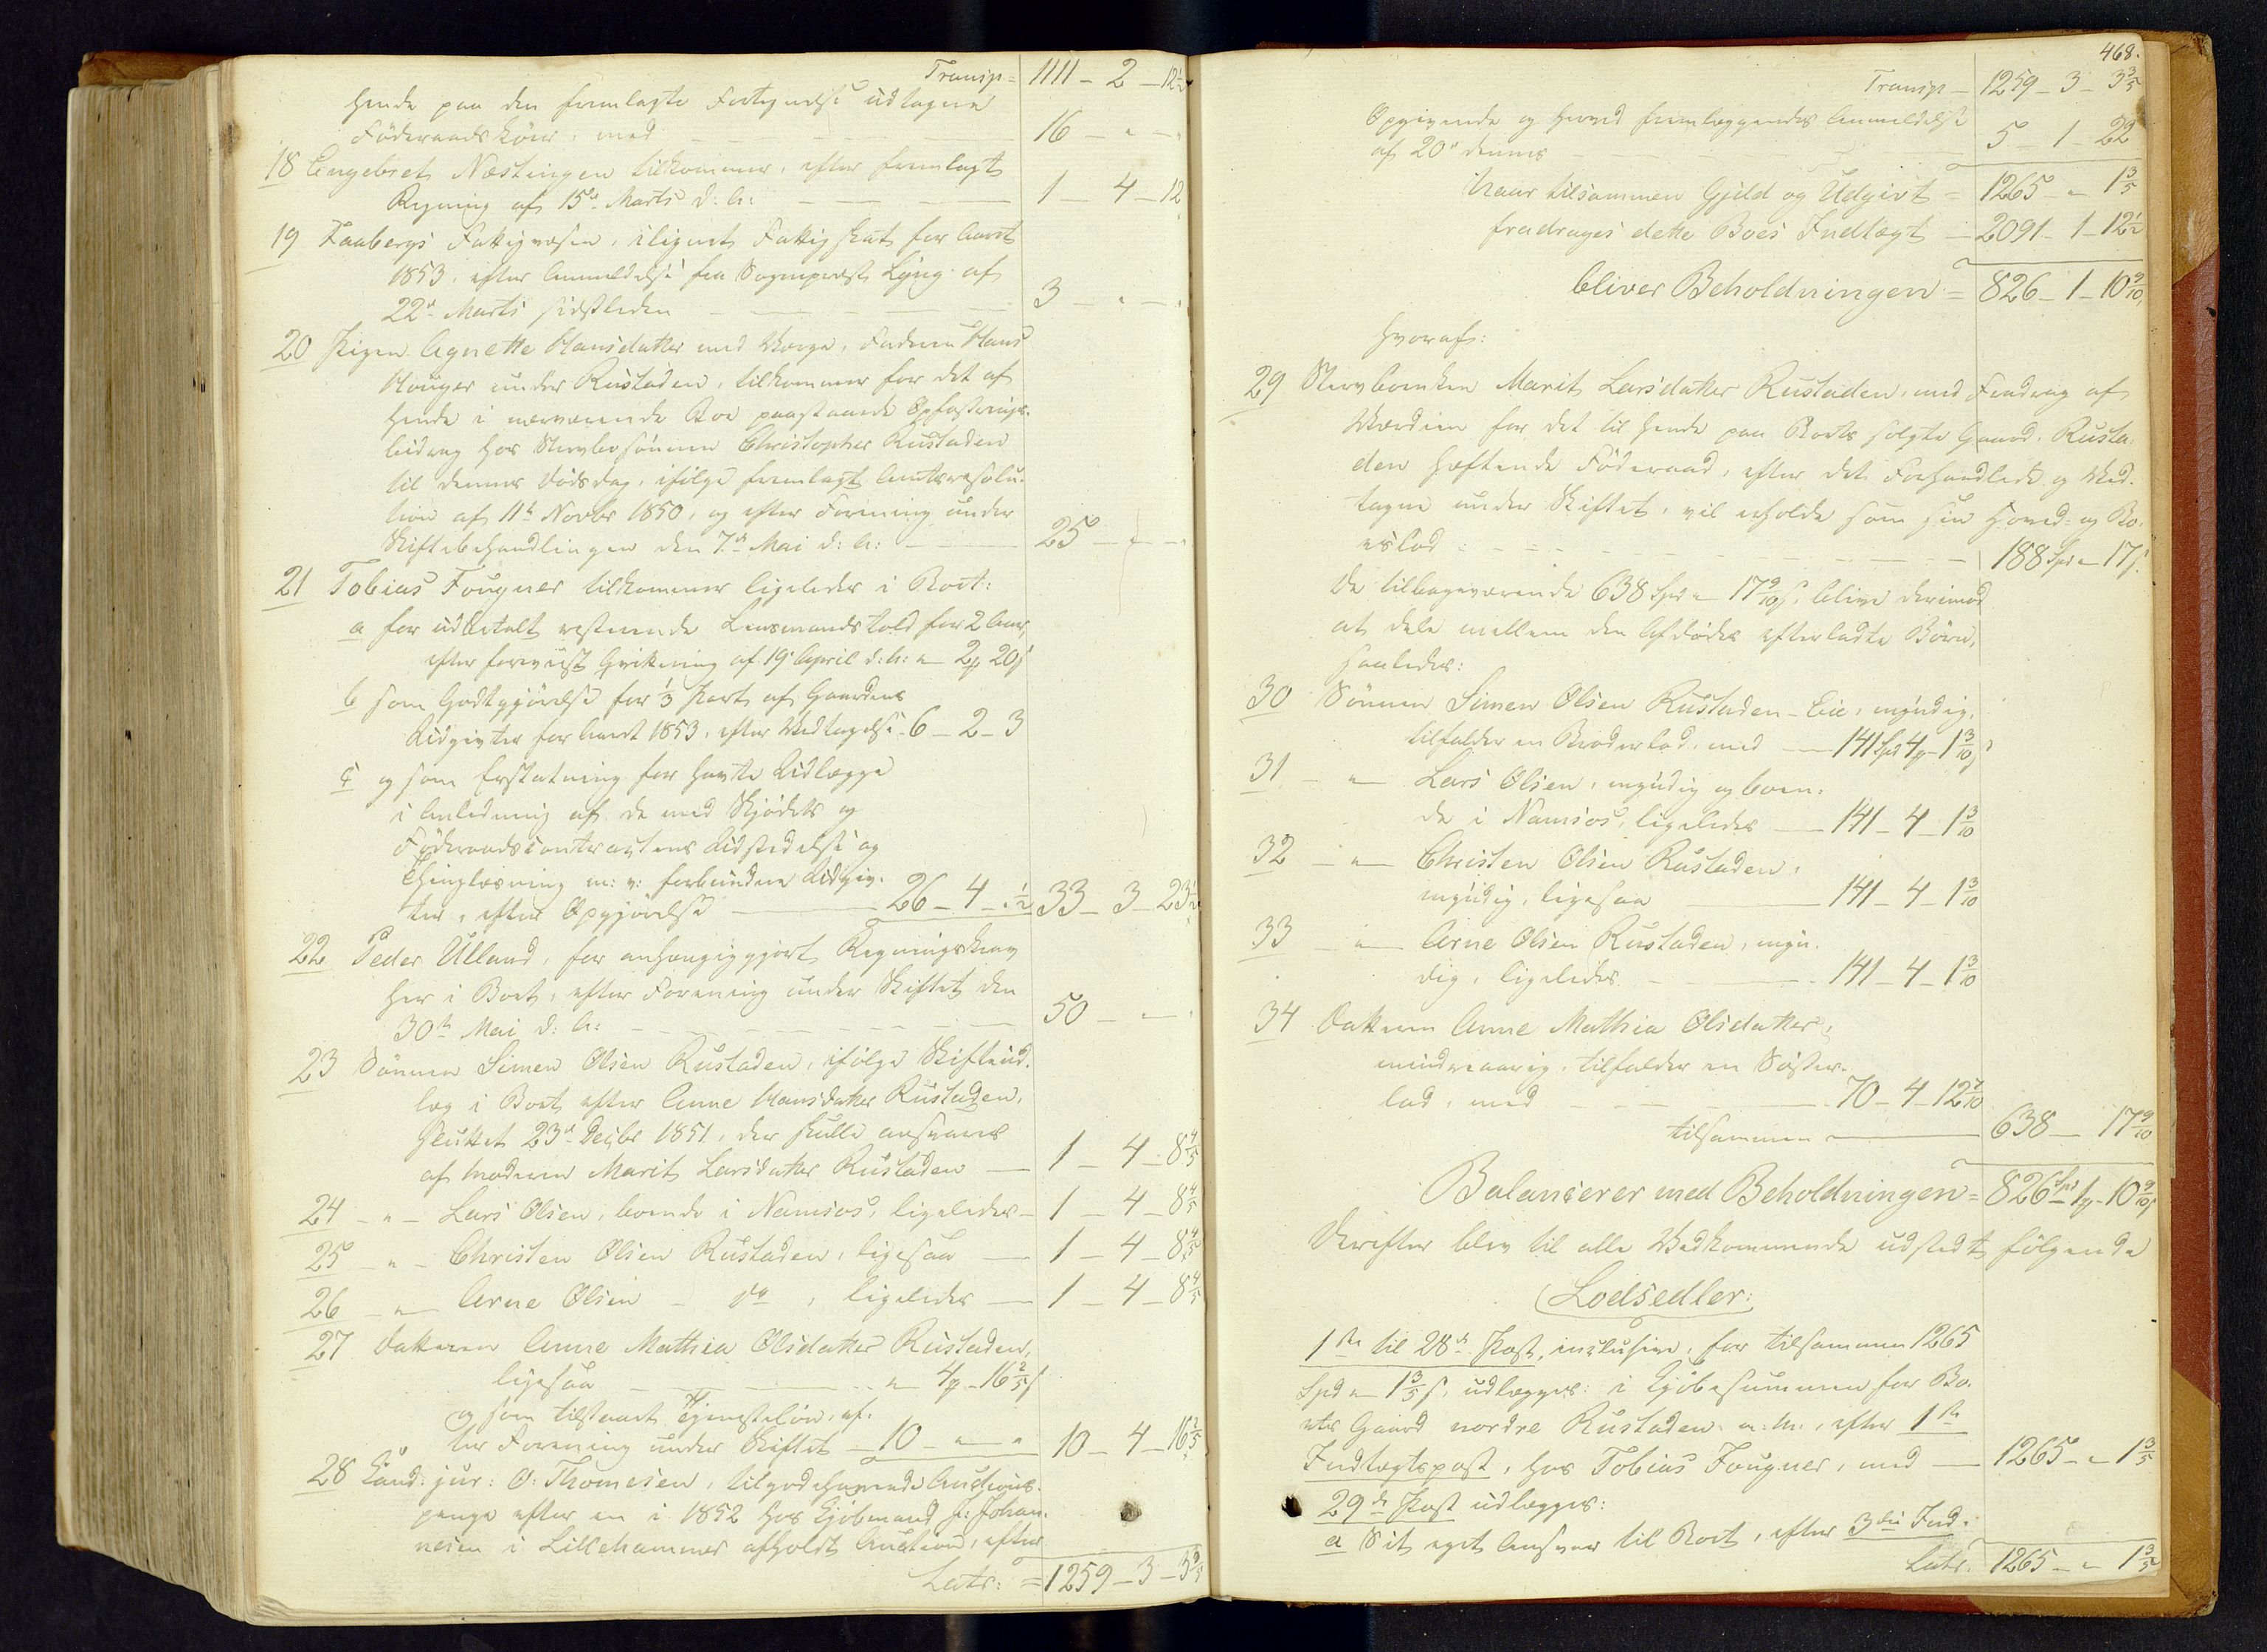 Transp = 1111 - 2 - 12½
hende paa den fremlagte Fortegnelse udtagne
Föderaadsköer, med 16 - " - "
18 Engebret Næstingen tilkommer, efter fremlagt
Regning af 15de Marts d: A: 1 - 4 - 12
19 Faabergs Fattigvæsen, ilignet Fattigskat for Aaret
1853, efter Anmeldelse fra Sognepræst Lyng af
22de Marts sidstleden 3 - " - "
20 Pigen Agnette Hansdatter med Værge, Faderen Hans
Houger under Rustaden, tilkommer for det af
hende i nærværende Boe paastaaede Opfostrings-
bidrag hos Stervbosönnen Christopher Rustaden
til dennes Dödsdag, ifölge fremlagt Amtsresolu-
tion af 11te Novbr 1850, og efter Forening under
Skiftebehandlingen den 7de Mai d: A: 25 - " - "
21 Tobias Fougner tilkommer ligeledes i Boet:
a for udbetalt resterende Lensmandstold for 2 Aar,
efter foreviist Qvittering af 19 April d: A: " 2 20
b som Godtgjörelse for ⅓ Part af Gaardens
Udgivter for Aaret 1853, efter Vedtagelse - 6 - 2 - 3
c og som Erstatning for havte Udlægge
i Anledning af de med Skjödets og
Föderaadscontractens Udstedelse og
Thinglæsning m: v: forbundne Udgiv-
ter, efter Opgjörelse 26 - 4 - "½ 33 - 3 - 23½
22 Peder Ulland, for anhængiggjort Regningskrav
her i Boet, efter Forening under Skiftet den
30te Mai d: A: 50 - " - "
23 Sönnen Simen Olsen Rustaden, ifölge Skifteud-
læg i Boet efter Anne Hansdatter Rustaden,
sluttet 23de Decbr 1851, der skulle ansvares
af Moderen Marit Larsdatter Rustaden 1 - 4 - 8⅘
24 - " - Lars Olsen, boende i Namsos, ligeledes 1 - 4 - 8⅘
25 - " - Christen Olsen Rustaden, ligesaa 1 - 4 - 8⅘
26 - " - Arne Olsen - do, ligeledes 1 - 4 - 8⅘
27 Datteren Anne Mathia Olsdatter Rustaden,
ligesaa " 4 - 16⅖
og som tilstaaet Tjenestelön, ef-
ter Forening under Skiftet 10 - " - " 10 - 4 - 16⅖
28 Cand: jur: O: Thomesen, tilgodehavende Auctions-
penge efter en i 1852 hos Kjöbmand J: Johan-
nesen i Lillehammer afholdt Auction, efter
Latr: = 1259 - 3 - 3⅗
468.
Transp - 1259 - 3 - 3⅗
Opgivende og herved fremlæggendes Anmeldelse
af 20de dennes 5 - 1 - 22
Naar tilsammen Gjeld og Udgivt = 1265 - " - 1⅗
fradrages dette Boes Indtægt - 2091 - 1 - 12½
bliver Beholdningen = 826 - 1 - 10 9/10,
hvoraf:
29 Stervboenken Marit Larsdatter Rustaden, med Fradrag af
Værdien for det til hende paa Boets solgte Gaard, Rusta-
den hæftende Föderaad, efter det Forhandlede og Ved-
tagne under Skiftet, vil erholde som sin Hoved- og Bo-
eslod: 188 Spd " 17 s.
De tilbageværende 638 Spd " 17 9/10 s. blive derimod
at dele mellem den Afdödes efterladte Börn,
saaledes:
30 Sönnen Simen Olsen Rustaden-Eie, myndig,
tilfalder en Broderlod, med 141 Spd 4 - 1 3/10
31 - " - Lars Olsen, myndig og boen-
de i Namsos, ligeledes 141 - 4 - 1 3/10
32 - " - Christen Olsen Rustaden,
myndig, ligesaa 141 - 4 - 1 3/10
33 - " - Arne Olsen Rustaden, myn-
dig, ligeledes 141 - 4 - 1 3/10
34 Datteren Anne Mathia Olsdatter,
mindreaarig, tilfalder en Söster-
lod, med 70 - 4 - 12 7/10
tilsammen 638 - 17 9/10
Balancerer med Beholdningen = 826 Spd 1 - 10 9/10
Derefter blev til alle Vedkommende udstedt fölgende
Lodsedler:
1ste til 28de Post, inclusive, for tilsammen 1265
Spd " 1⅗ s. udlægges: i Kjöbesummen for Bo-
ets Gaard nordre Rustaden m: M:, efter 1ste
Indtægtspost, hos Tobias Fougner, med 1265 - " - 1⅗
29de Post udlægges:
a Sit eget Ansvar til Boet, efter 3die Ind-
Latr. 1265 - " - 1⅗